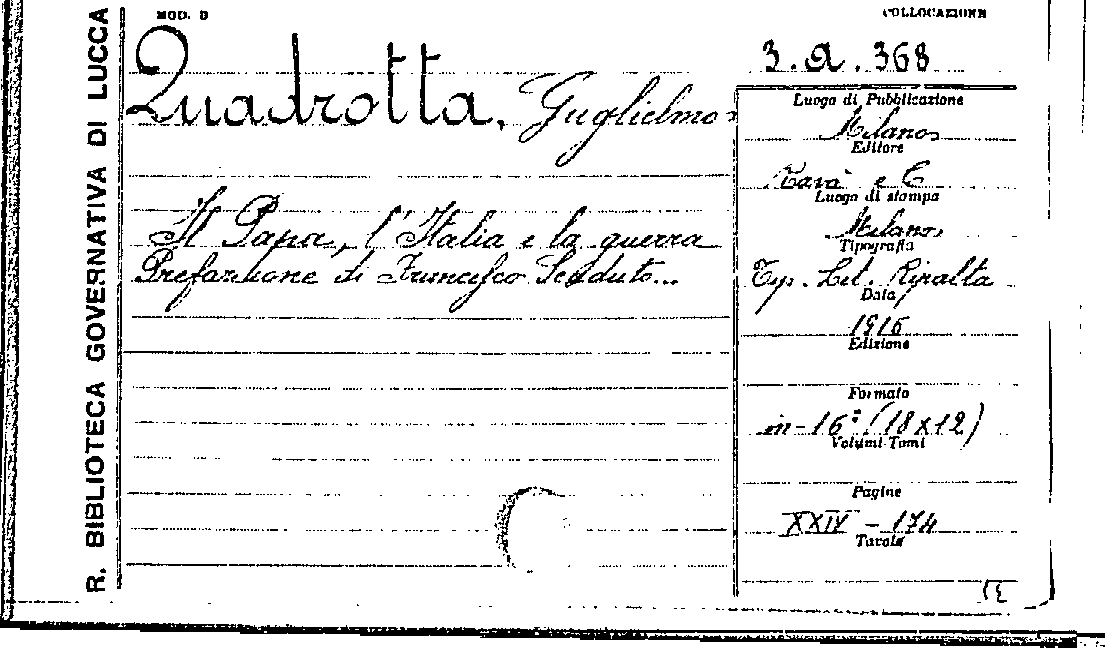 R. BIBLIOTECA GOVERNATIVA DI LUCCA
MOD. D
COLLOCAZIONE
3. A. 368
Quadrotta, Guglielmo
Il Papa, l'Italia e la guerra
Prefazione di Francesco Scaduto...
Luogo di Pubblicazione
Milano
Editore
Ravà e C
Luogo di stampa
Milano
Tipografia
Typ. Lit. Ripalta
Data
1916
Edizione
Formato
in-16° (18x12)
Volumi-Tomi
Pagine
XXIV - 174
Tavole